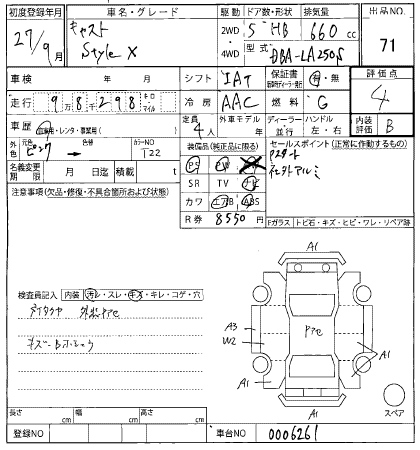 初度登録年月 車名・グレード 駆動 ドア数・形状 排気量 出品NO.
27/9月 キャスト Style X 2WD 4WD 5 HB 660cc 71
型式 DBA-LA250S
車検 年 月 シフト IAT 保証書 有・無 評価点
走行 98298 キロ・マイル 冷房 AAC 燃料 G 4
車歴 自家用・レンタ・事業用( ) 定員 4人 外車モデル 年 ディーラー・並行 ハンドル 左・右 内装評価 B
外色 元色 ピンク 色替 カラーNO T22 装備品(純正品に限る) セールスポイント(正常に作動するもの)
名義変更期限 月 日迄 積載 t PS PW Pスタート
注意事項(欠品・修復・不具合箇所および状態) SR TV ナビ 社外アルミ
カワ エアB ABS
R券 8550円 Fガラス トビ石・キズ・ヒビ・ワレ・リペア跡
A1
検査員記入 内装 汚レ・スレ・キズ・キレ・コゲ・穴
A3
W2
A1
A1
A1
スペア
長さ cm 幅 cm 高さ cm
登録NO 車台NO 0006261